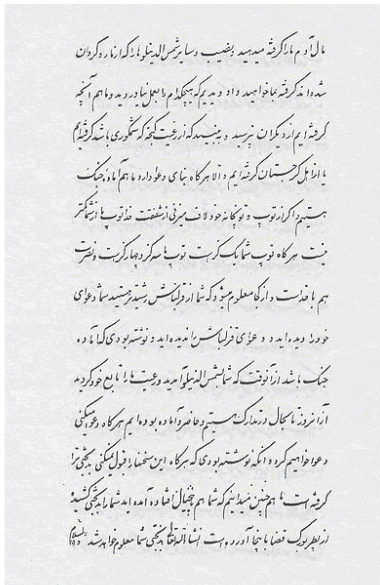 مال آدم ما را گرفته میدهید بنصیب و سایر شمس الدینلو ها را که از ما رو گردان
شده اند گرفته بما خواهید داد و دیدیم که هیچکدام را بعمل نیاوردید و ما هم آنچه
گرفته ایم از دیگران نپرسید و به بینید که از رعیت گنجه که شمکوری باشد گرفته ایم
یا از اهل گرجستان گرفته ایم و الا هر گاه بنای دعوا دارد ما هم آماده جنگ
هستیم و اگر از توپ و توپخانه خود لاف میزنی از شفقت خدا توپ ما از شما کمتر
نیست هر گاه توپ شما یک گز است توپ ما سه گز و چهار گز است و نصرت
هم با خداست و از کجا معلوم میشود که شما از قزلباش رشیدتر هستید شما دعوای
خود را دیده اید و دعوای قزلباش را ندیده اید و نوشته بودی که آماده
جنگ باشد از آنوقت که شما بشمس الدینلو آمدید و رعیت ما را تابع خود کردید
از آنروز تا بحال در تدارک هستیم و حاضر و آماده بوده ایم هر گاه دعوا میکنی
دعوا خواهیم کرد و آنکه نوشته بودی که هر گاه این سخنها را قبول نمیکنی بدبختی ترا
گرفته است ما هم چنین میدانیم که شما هم باین خیال افتاده آمده اید شما را بدبختی کشیده
از بطربورک قضا باینجا آورده است انشاءالله تعالی بدبختی شما معلوم خواهد شد والسلام